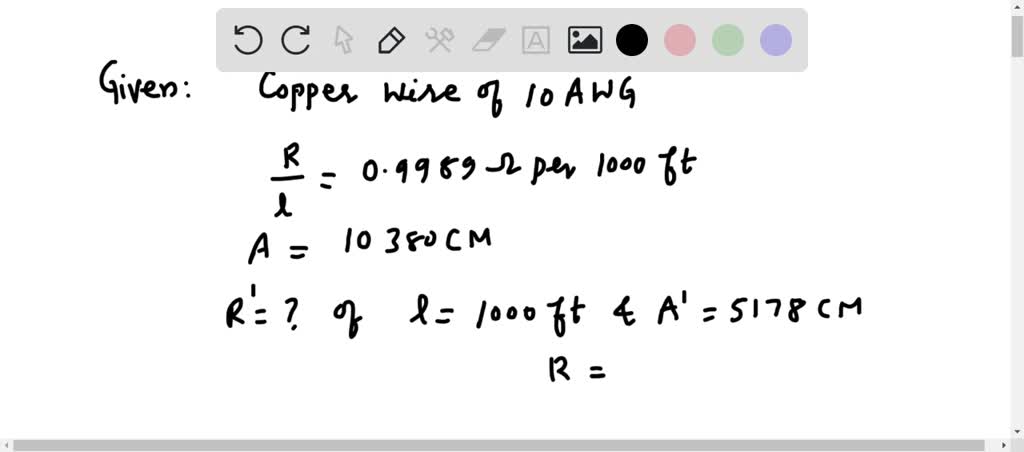 A
Given: Copper wire of 10 AWG
R/l = 0.9989 Ω per 1000 ft
A = 10380 CM
R' = ? of l = 1000 ft & A' = 5178 CM
R =